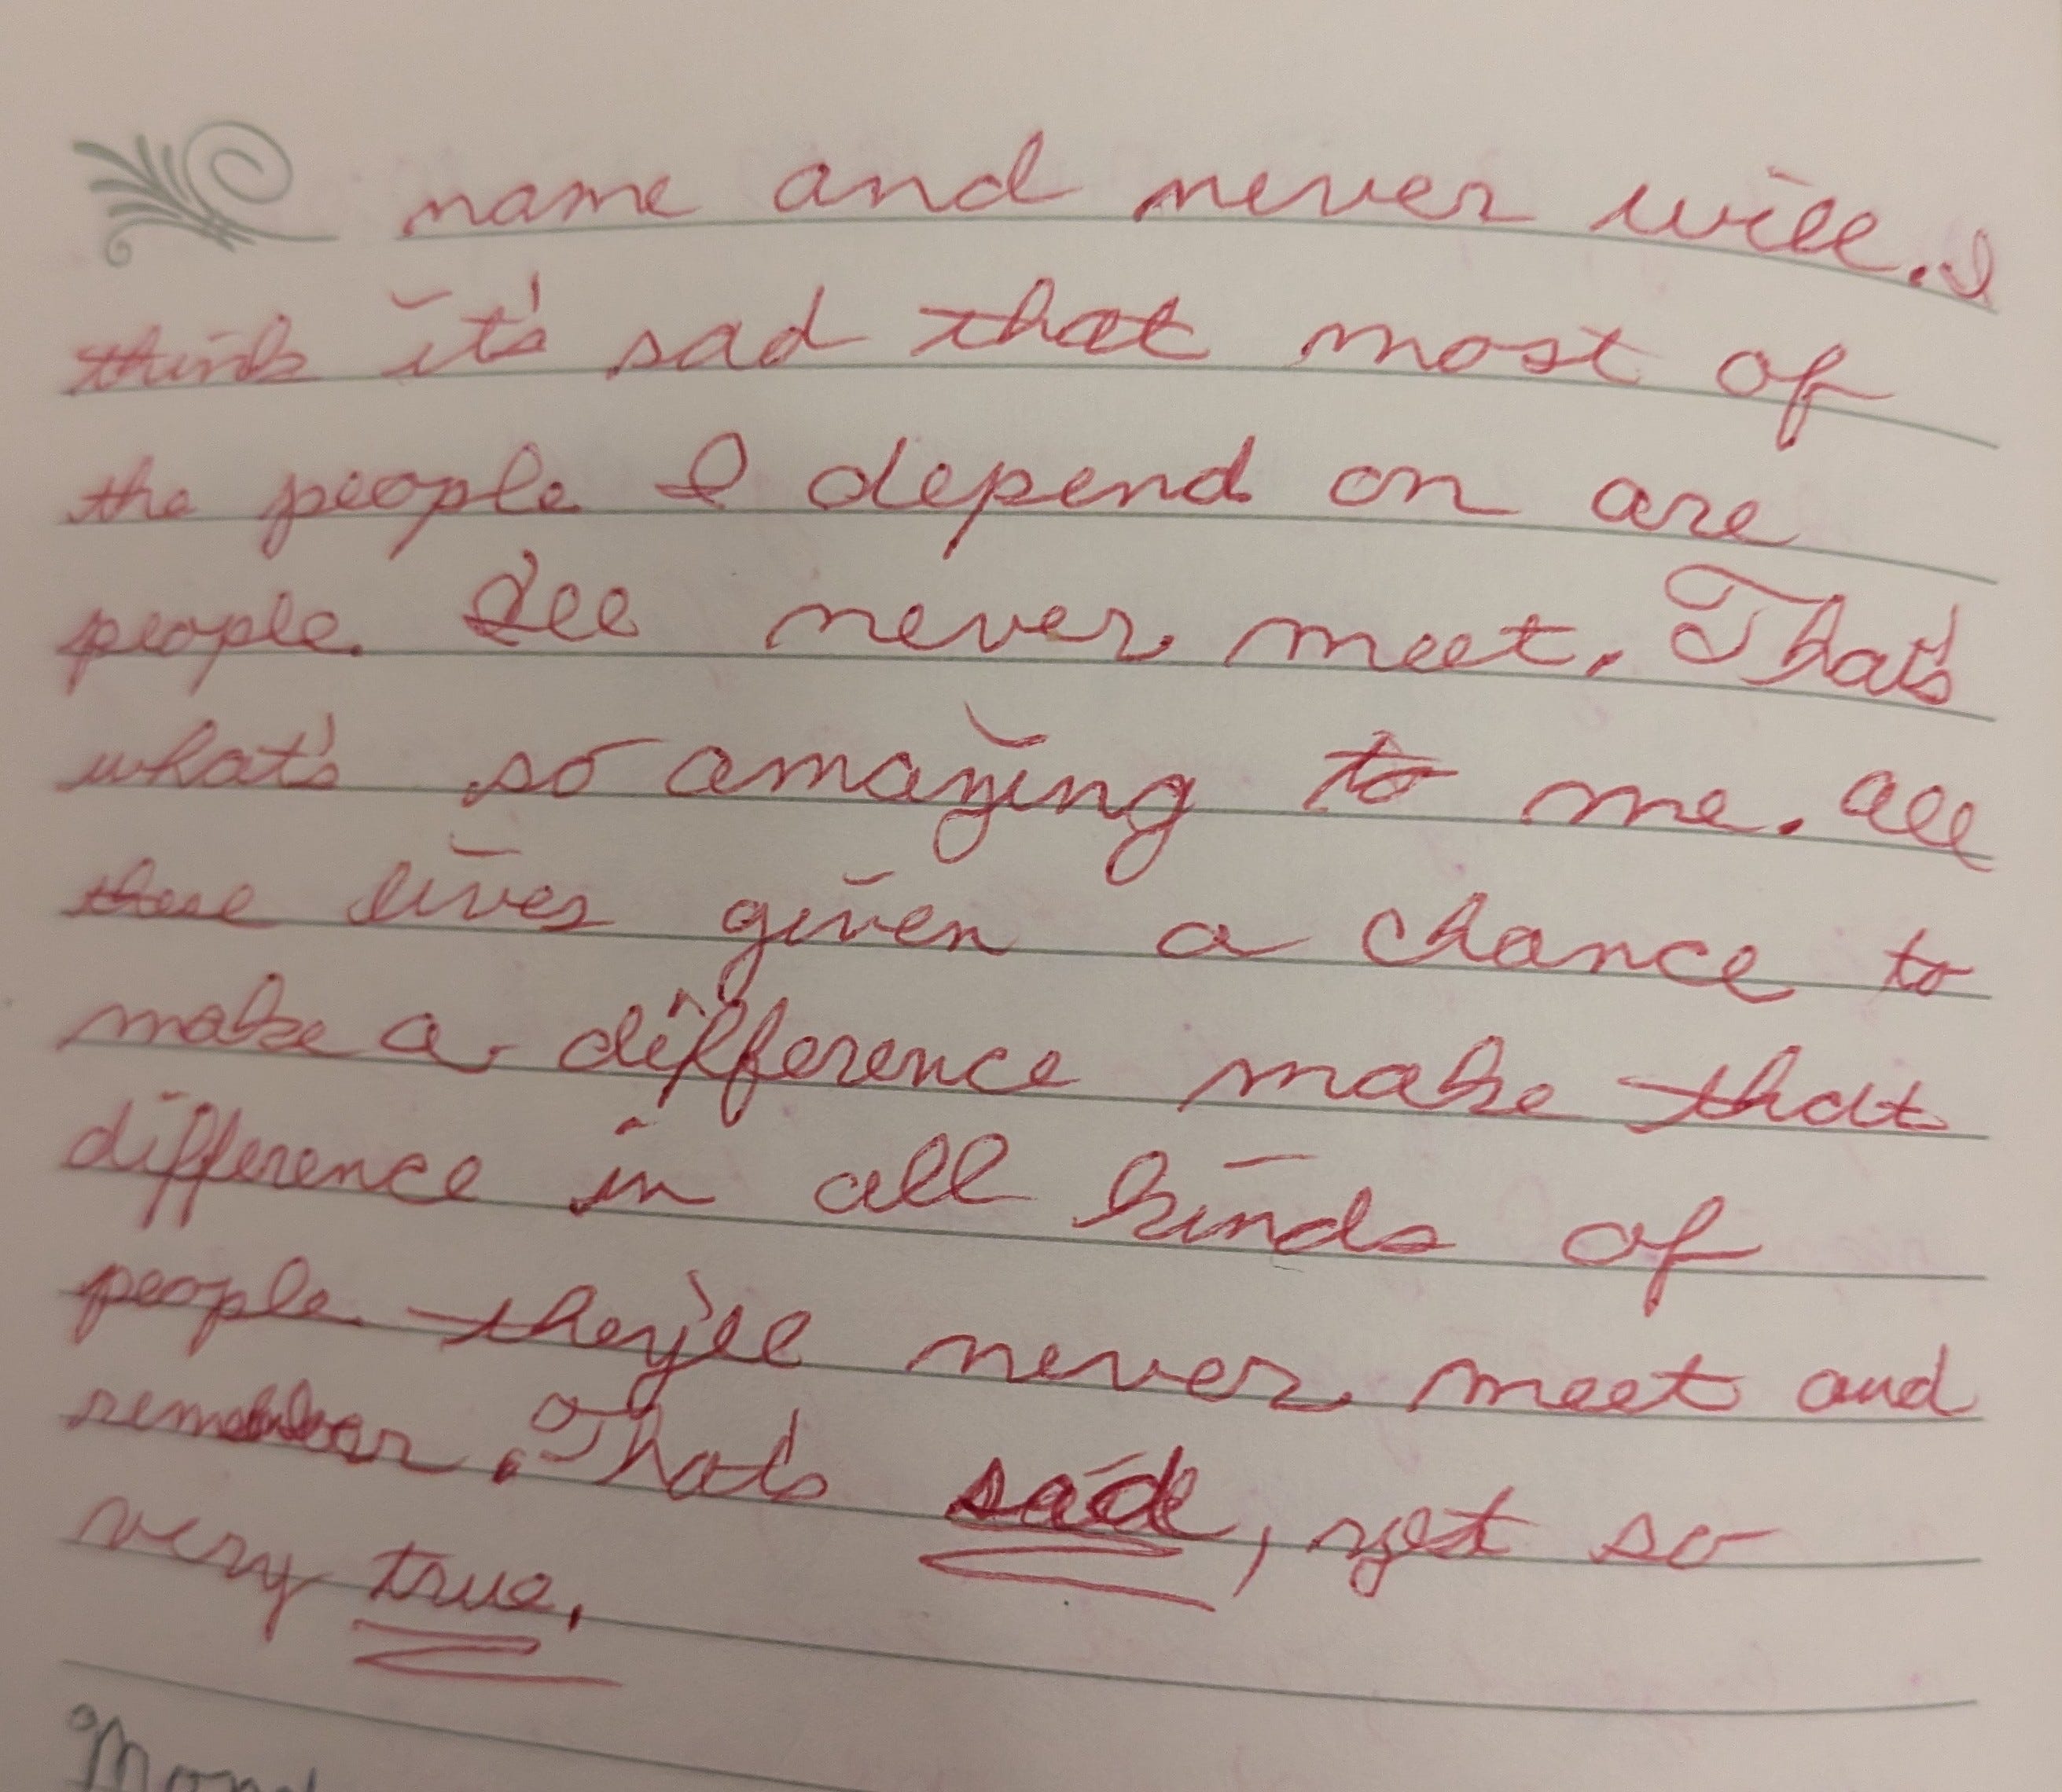 name and never will. I
think it's sad that most of
the people I depend on are
people I'll never meet. That's
what's so amazing to me. All
these lives given a chance to
make a difference make that
difference in all kinds of
people they'll never meet and
remember. That's sad, yet so
very true.